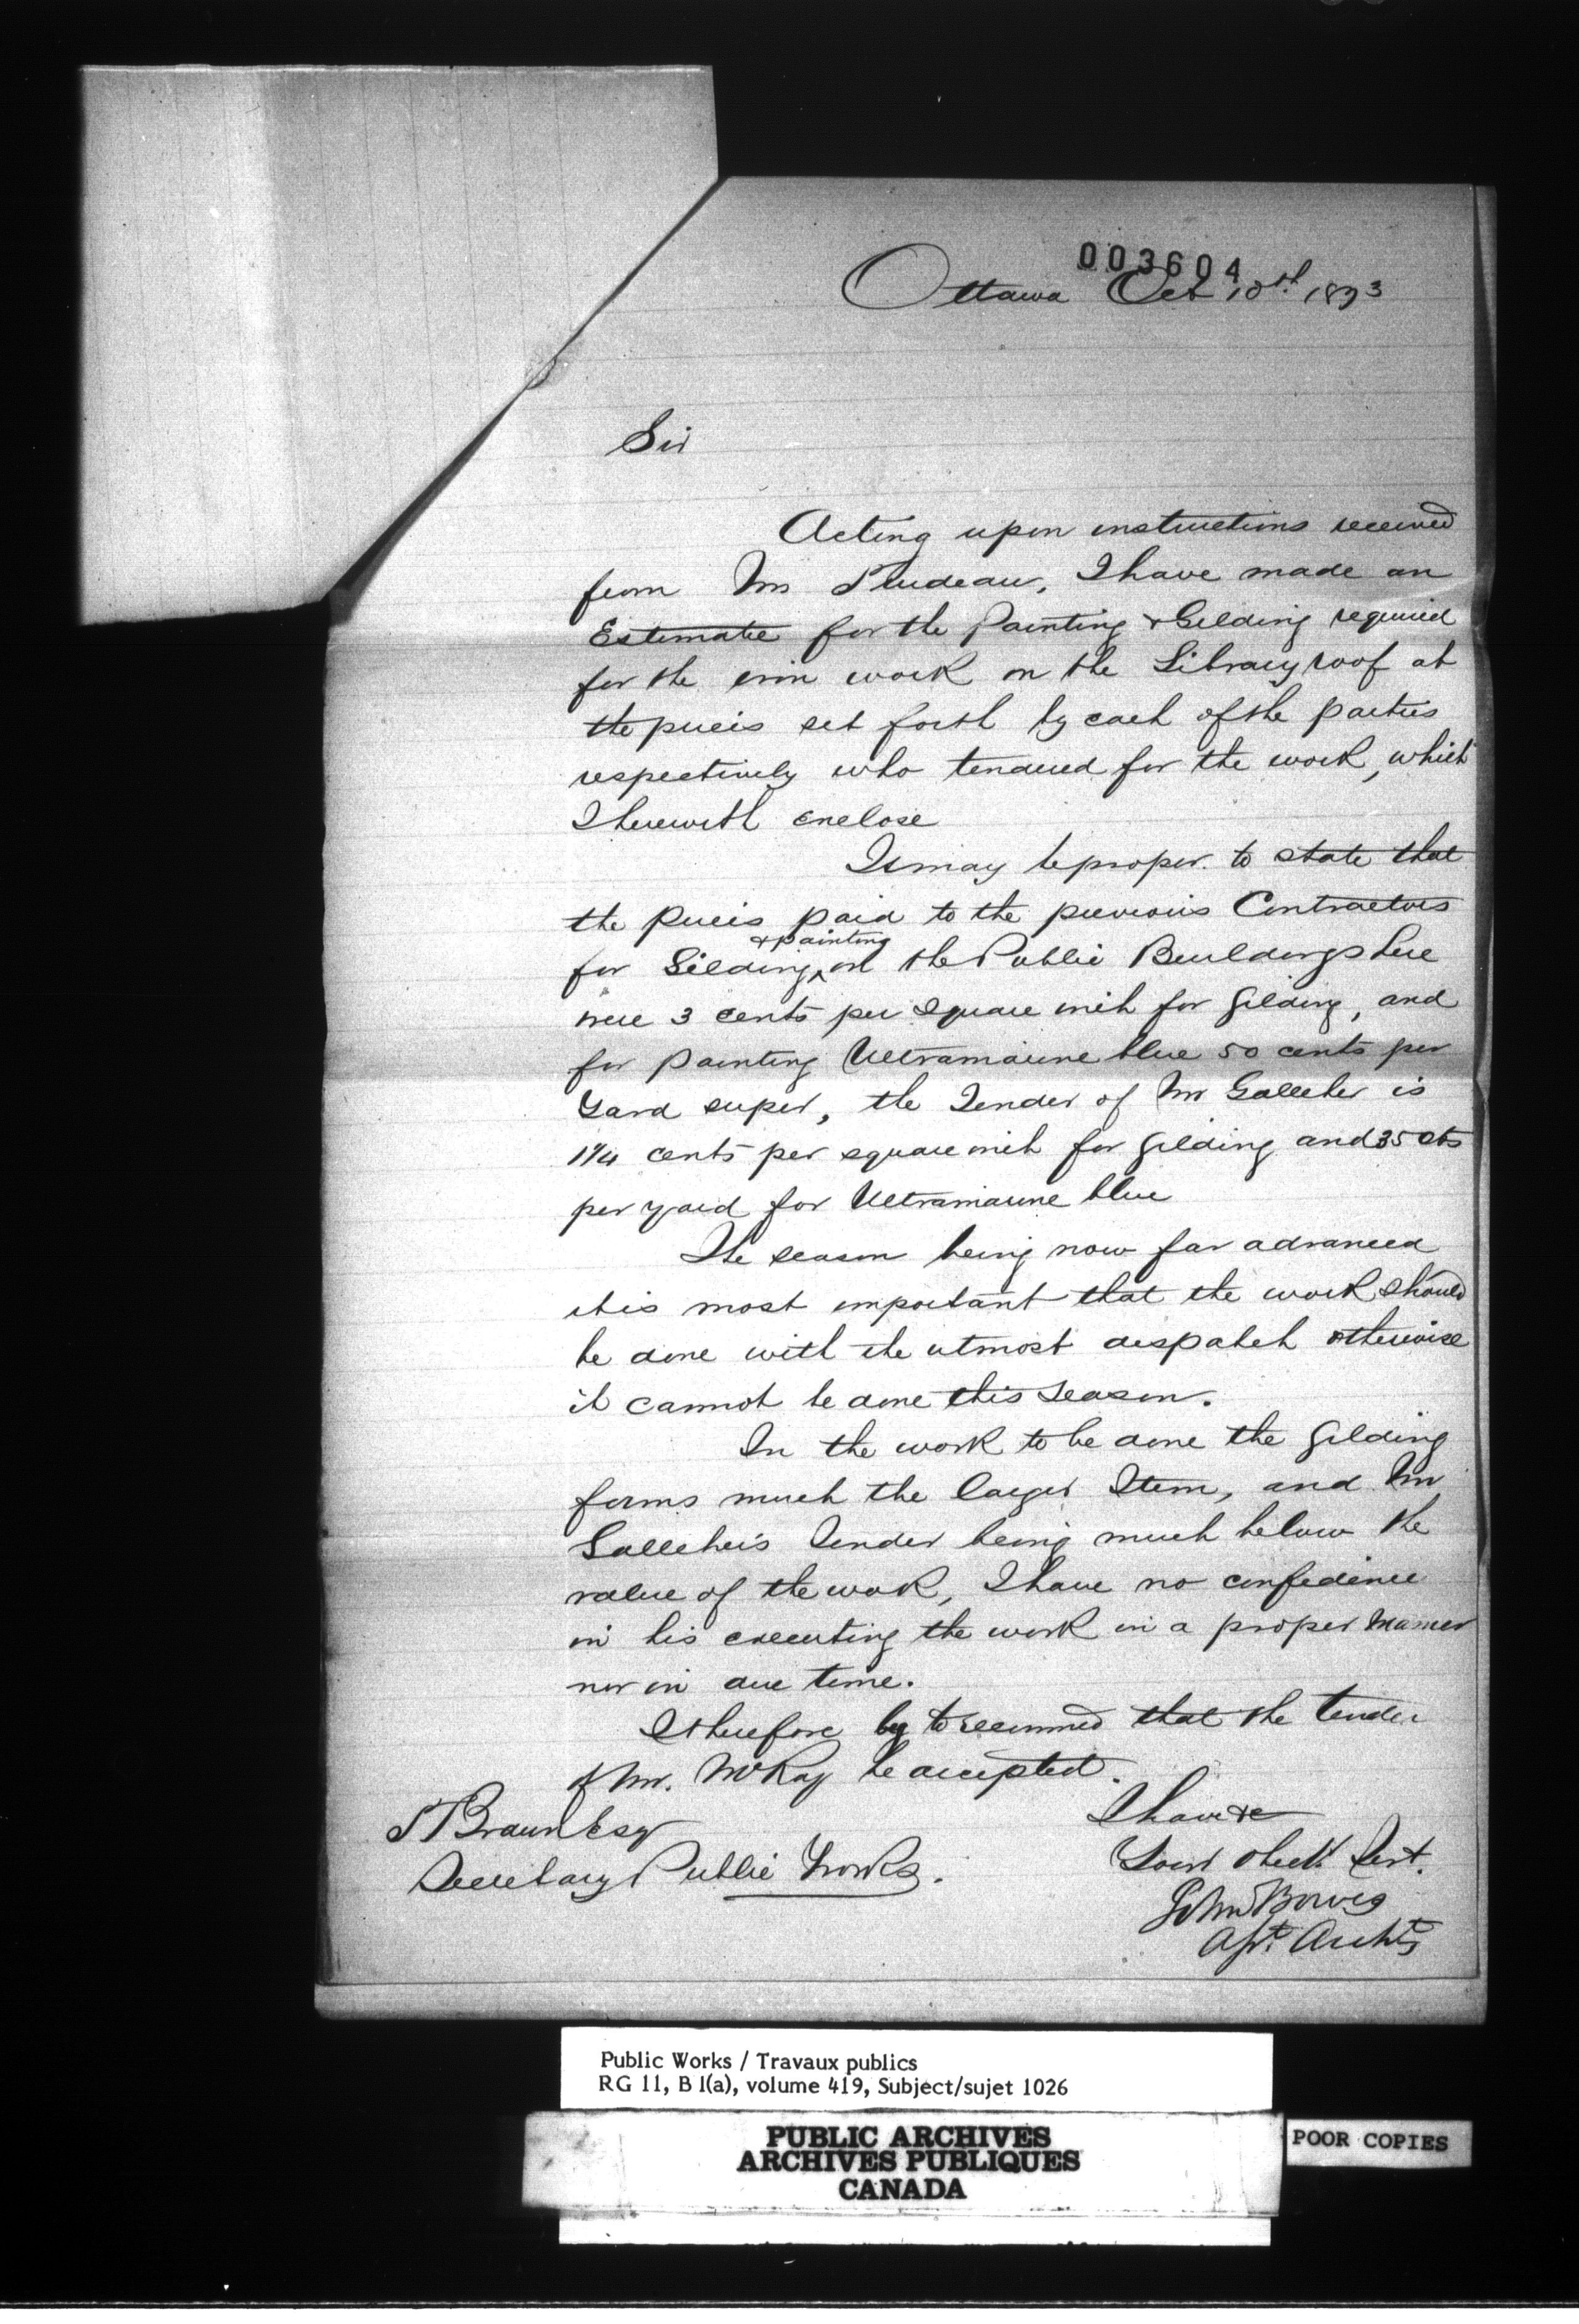 003604
Ottawa Oct 10th 1873
Sir
Acting upon instructions received
from Mr Trudeau, I have made an
Estimate for the Painting & Gilding required
for the iron work on the Library roof at
the prices set forth by each of the parties
respectively who tendered for the work, which
I herewith enclose
It may be proper to state that
the prices paid to the previous Contractors
& painting
for Gilding on the Public Buildings here
were 3 cents per square inch for gilding, and
for painting Ultramarine blue 50 cents per
Yard super, the Tender of Mr Galleher is
1 1/4 cents per square inch for gilding and 35 cts
per yard for Ultramarine blue
The season being now far advanced
it is most important that the work should
be done with the utmost despatch otherwise
it cannot be done this season.
In the work to be done the gilding
forms much the larger Item, and Mr
Galleher's Tender being much below the
value of the work, I have no confidence
in his executing the work in a proper manner
nor in due time.
I therefore beg to recommend that the tender
of Mr. McKay be accepted.
I have &c
Your obedt. Sert.
John Bowes
Archt
F Braun Esq
Secretary Public Works.
Public Works / Travaux publics
RG 11, B 1(a), volume 419, Subject/sujet 1026
PUBLIC ARCHIVES
ARCHIVES PUBLIQUES
CANADA
POOR COPIES